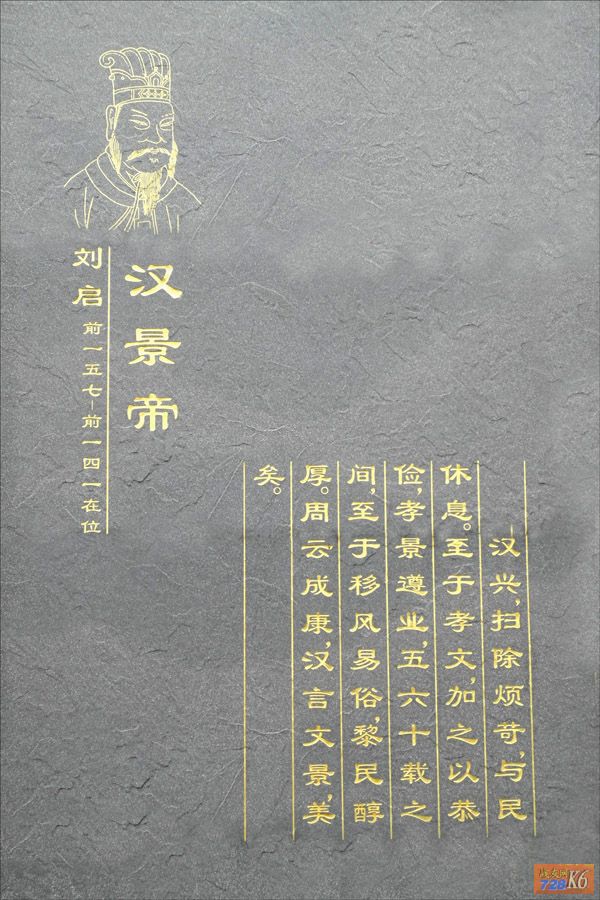 汉景帝
刘启 前一五七—前一四一在位
汉兴，扫除烦苛，与民
休息。至于孝文，加之以恭
俭，孝景遵业，五六十载之
间，至于移风易俗，黎民醇
厚。周云成康，汉言文景，美
矣。
728K6